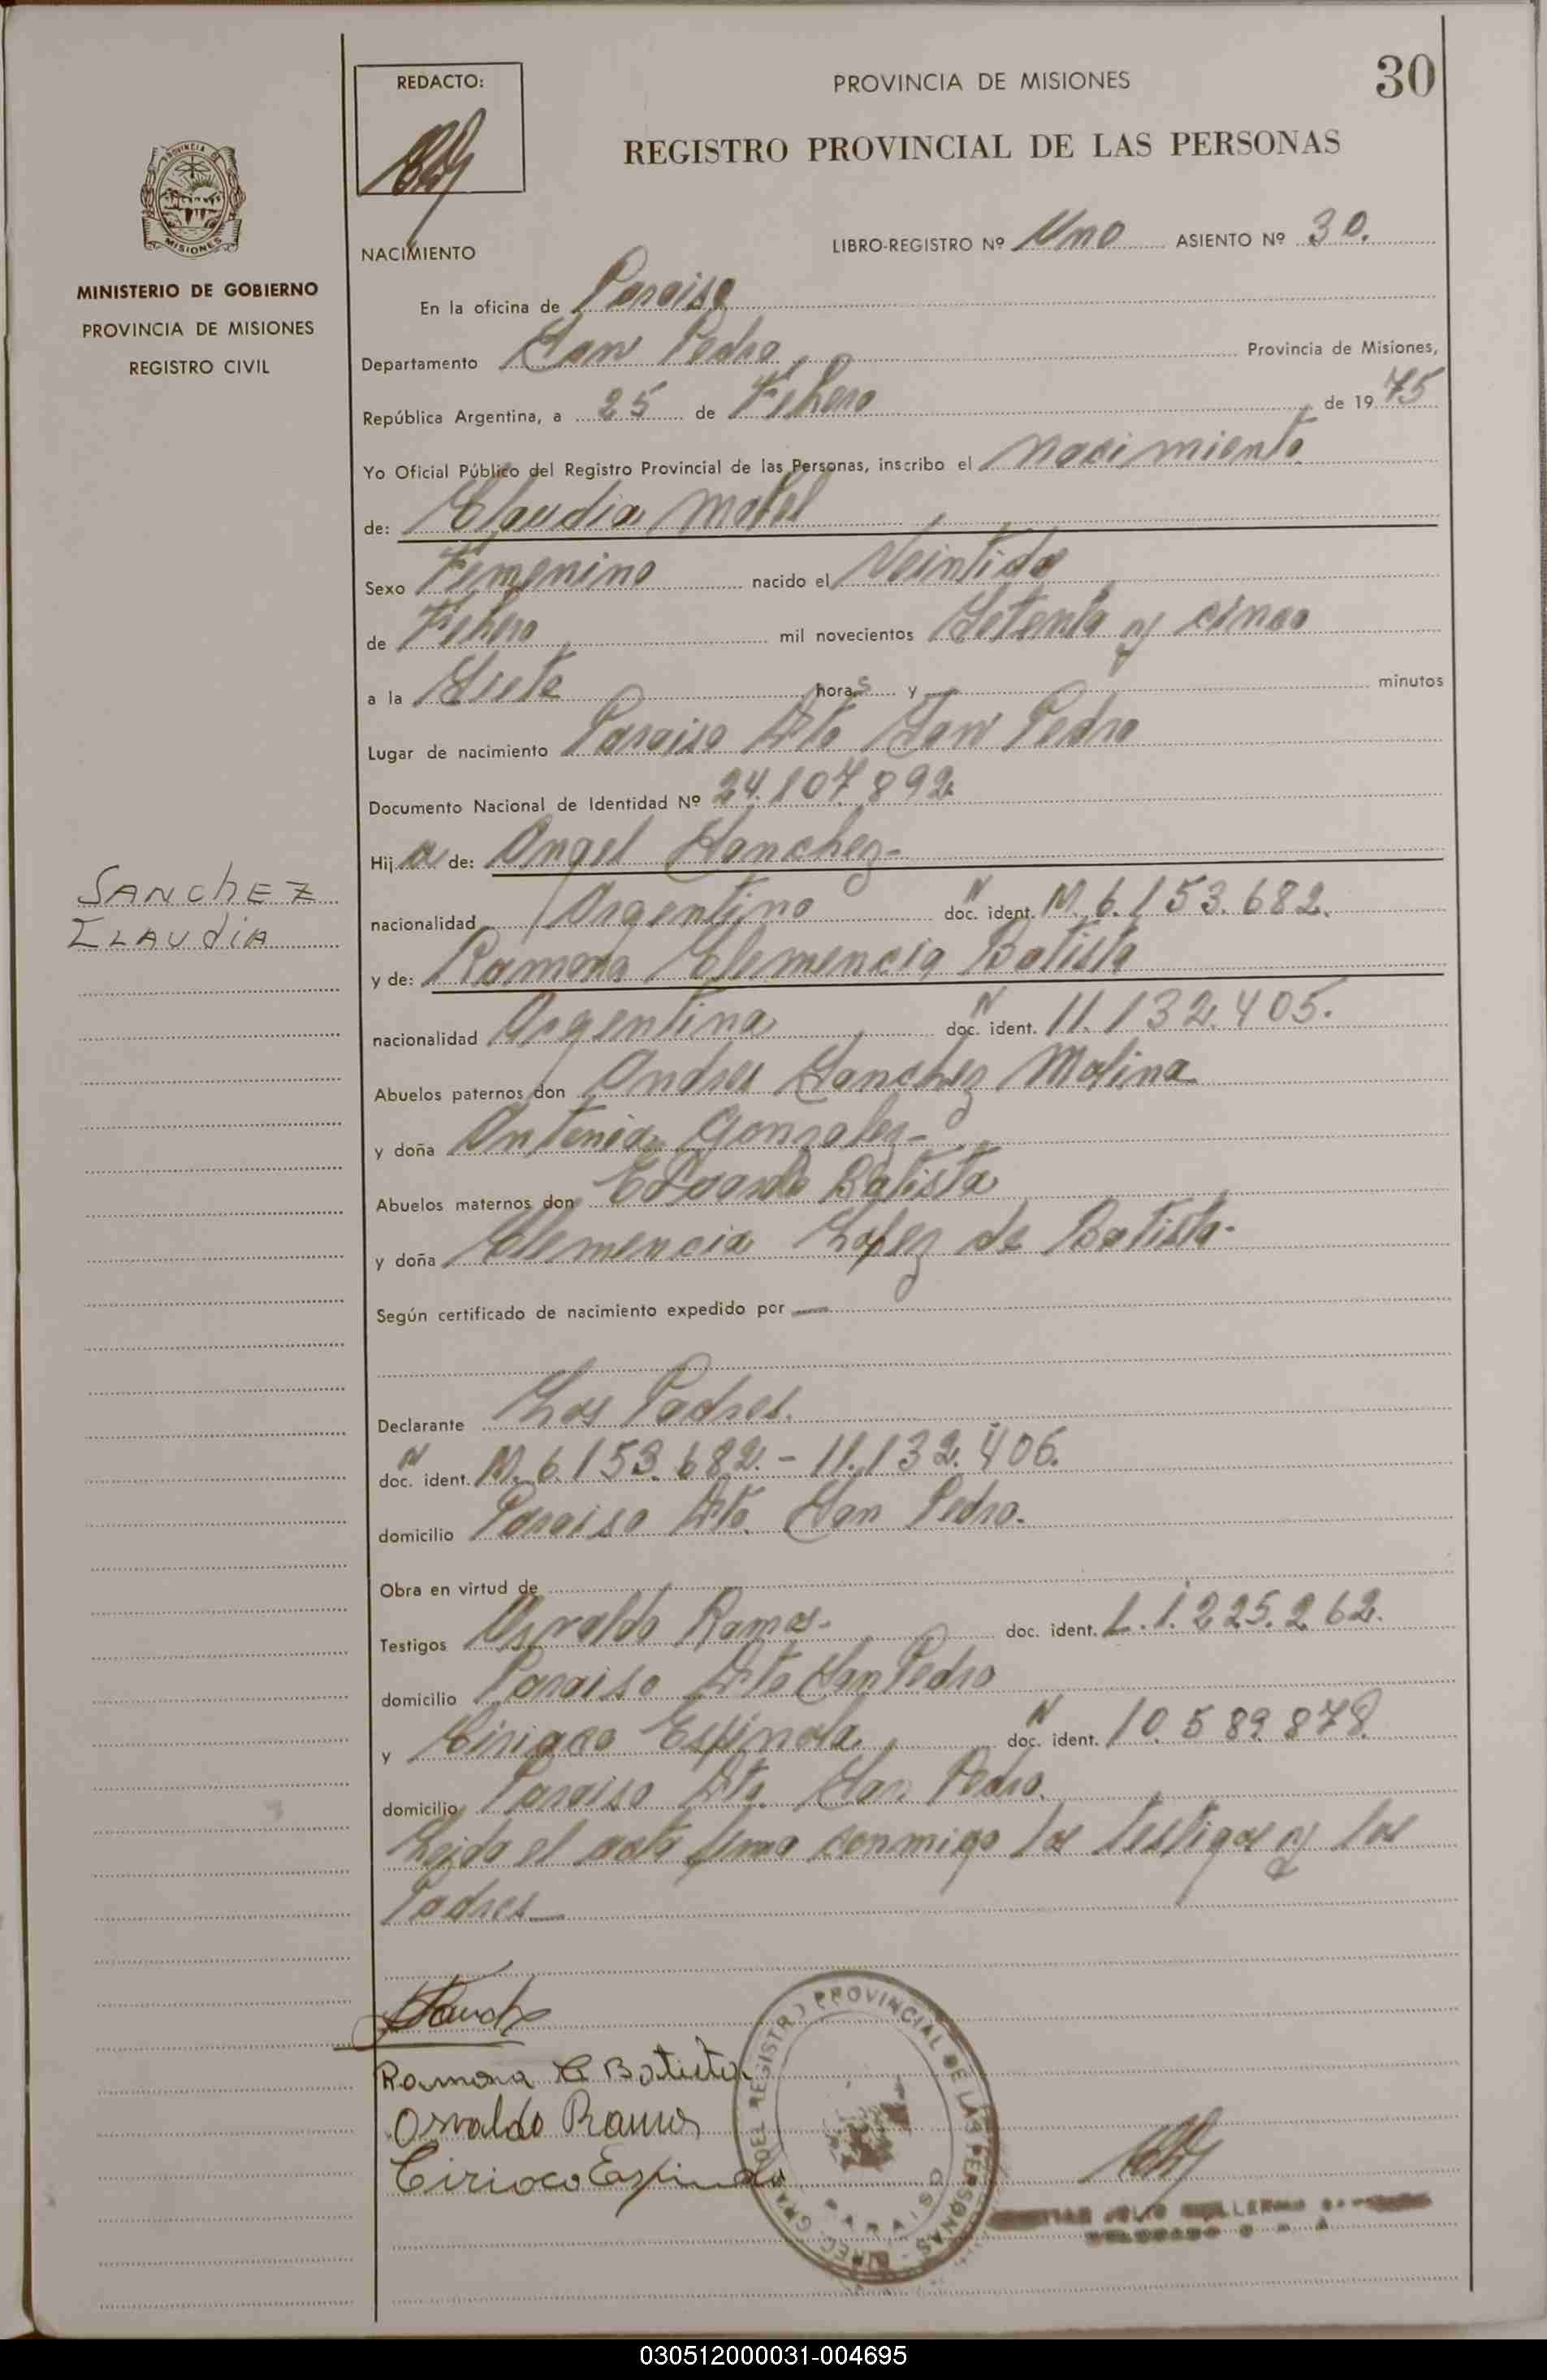 30
REDACTO:
PROVINCIA DE MISIONES
REGISTRO PROVINCIAL DE LAS PERSONAS
PROVINCIA DE
MISIONES
MINISTERIO DE GOBIERNO
PROVINCIA DE MISIONES
REGISTRO CIVIL
NACIMIENTO
LIBRO-REGISTRO Nº Uno ASIENTO Nº 30.
En la oficina de Paraiso
Departamento San Pedro Provincia de Misiones,
República Argentina, a 25 de Febero de 1975
Yo Oficial Público del Registro Provincial de las Personas, inscribo el nacimiento
de: Claudia
Sexo Femenino nacido el Veintido
de Febero mil novecientos Setenta y cinco
a la Siete horas y — minutos
Lugar de nacimiento Paraiso Dto San Pedro
Documento Nacional de Identidad Nº 24.107.892
Hija de: Angel Sanchez-
nacionalidad Argentino doc. ident. M. 6.153.682.
SANChEZ
CLAUdiA
y de: Ramona Clemencia Batista
nacionalidad Argentina doc. ident. 11.132.405.
Abuelos paternos don Andres Sanchez Molina
y doña Antonia Gonzalez-
Abuelos maternos don Eduardo Batista
y doña Clemencia Lopez de Batista-
Según certificado de nacimiento expedido por —
Declarante Los Padres.
doc. ident. M. 6.153.682.- 11.132.406.
domicilio Paraiso Dto. San Pedro.
Obra en virtud de
Testigos Osvaldo Ramos- doc. ident. L.1.225.262.
domicilio Paraiso Dto San Pedro
y Ciriaco Espinola doc. ident. 10.589.878.
domicilio Paraiso Dto. San Pedro.
Leida el acta firma conmigo los testigos y los
Padres—
Ramona C Batista
Osvaldo Ramos
Ciriaco Espinola
REGISTRO PROVINCIAL DE LAS PERSONAS
PARAISO
JULIO GUILLERMO
030512000031-004695